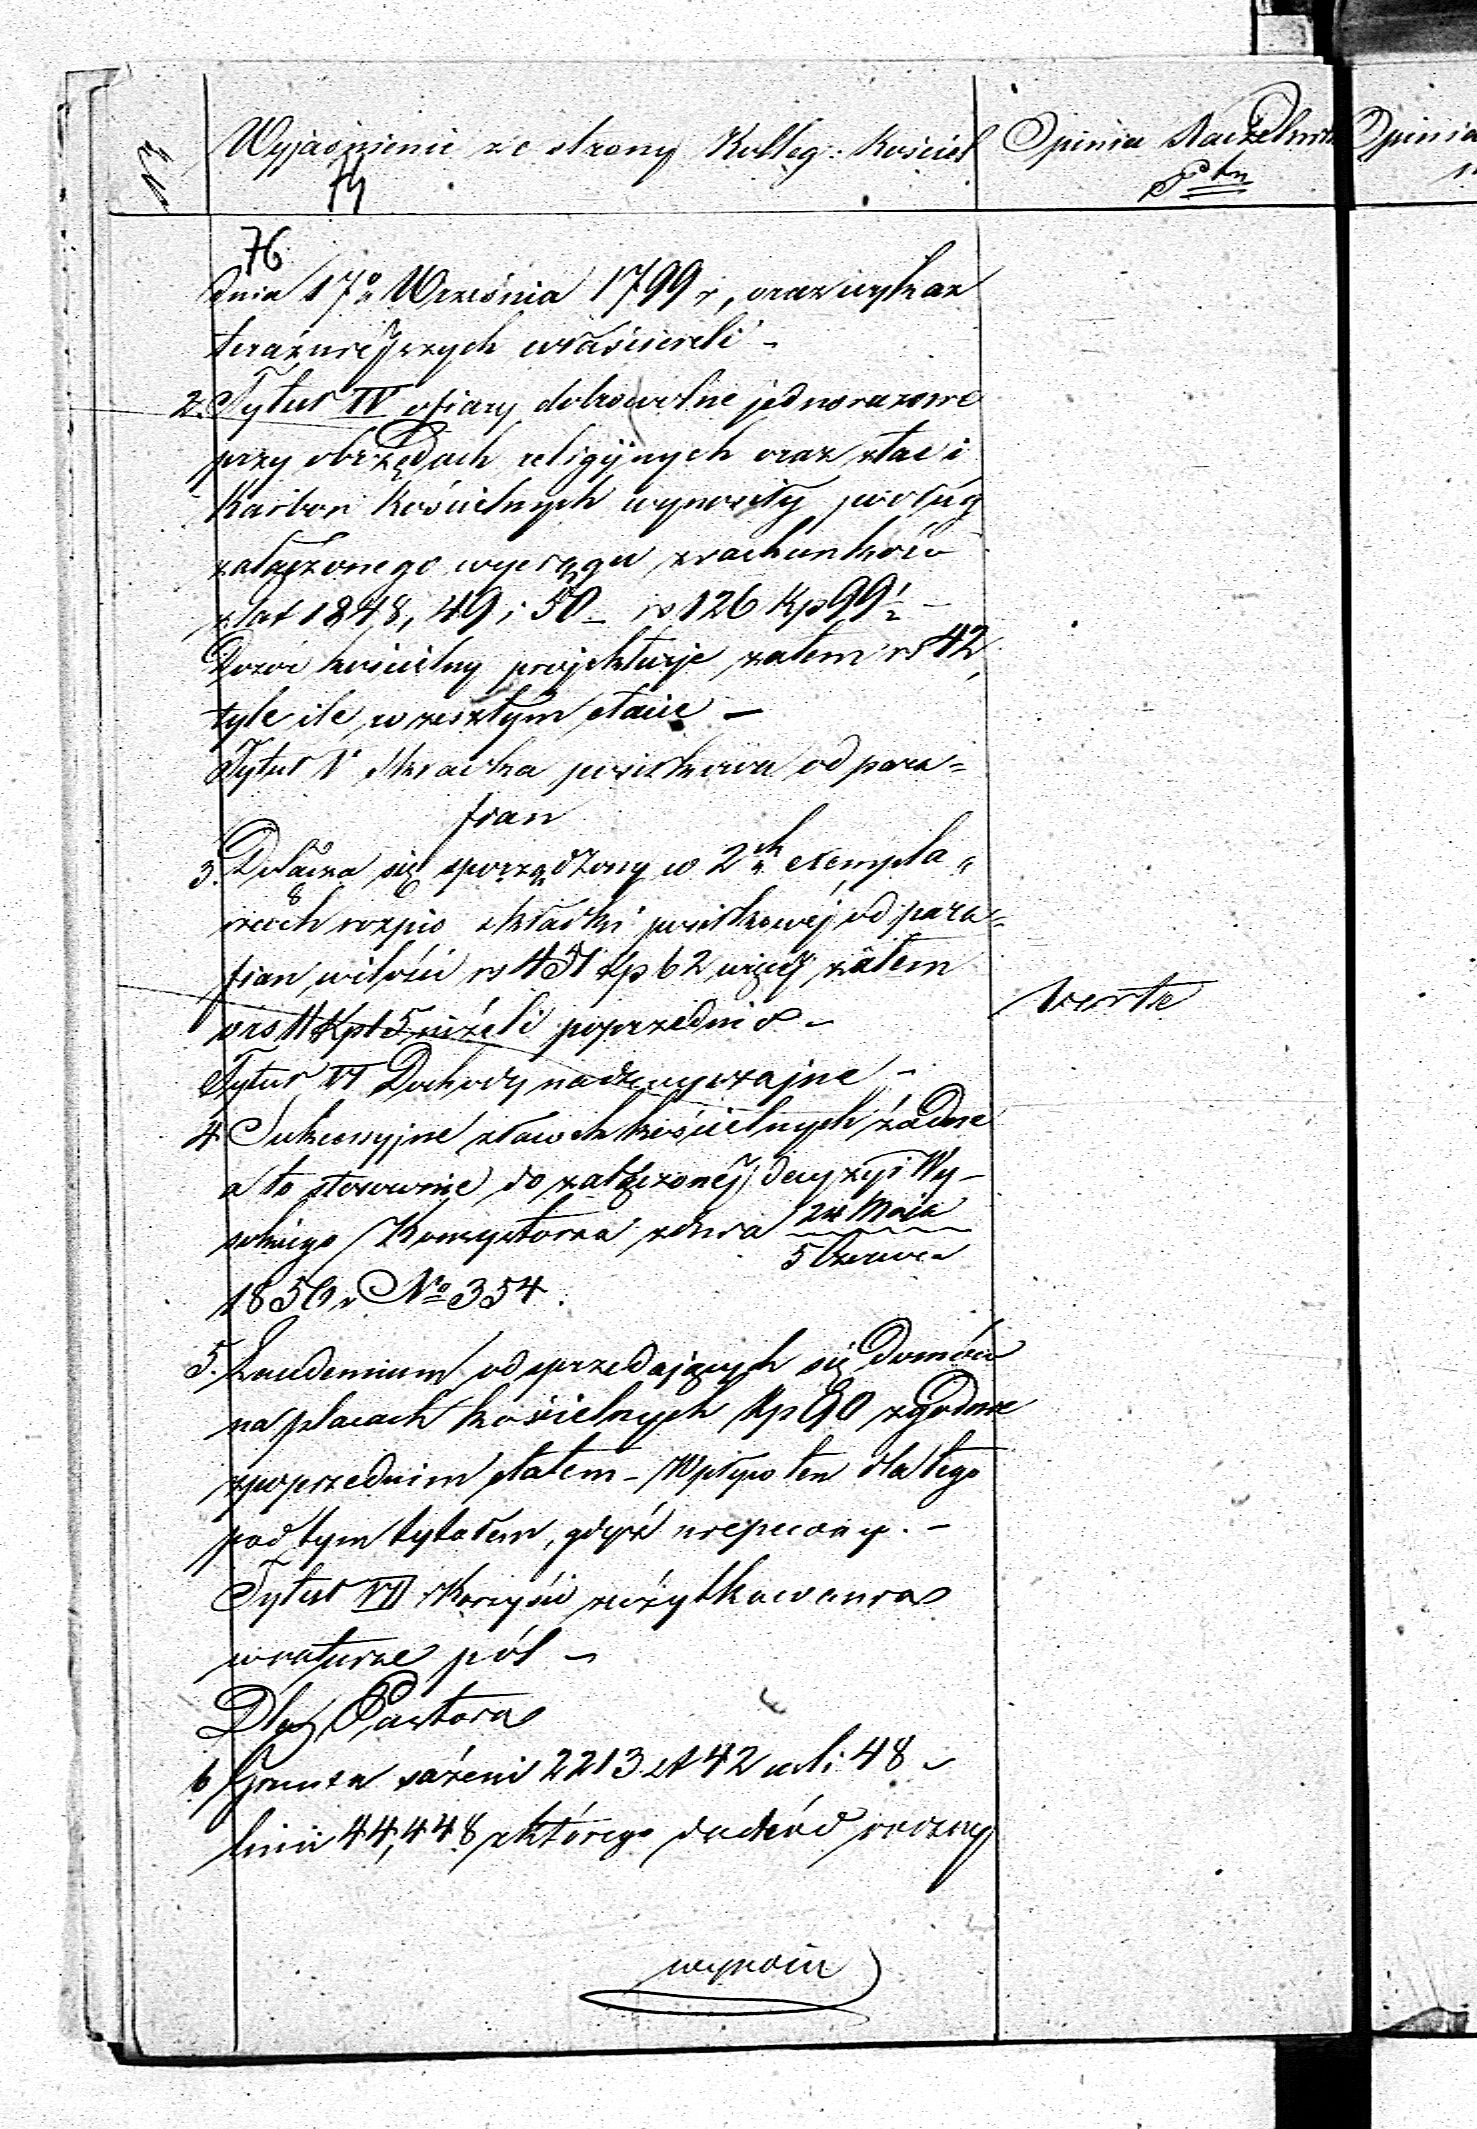 Wyjaśnienie ze strony Kolleg: Kościel
Opinia Naczelnika
Ptu
Opinia
74
76
dnia 17º Września 1799 r, oraz wykaz
teraźniejszych właścicieli –
2. Tytuł IV ofiary dobrowolne jednorazowe
przy obrzędach religijnych oraz z tac i
Karbon Kościelnych wynosiły podług
załączonego wyciągu z rachunków
z lat 1848, 49 i 50 – rs 126 kp 99½ –
Dozór kościelny projektuje zatem rs 42,
tyle ile w zeszłym etacie –
Tytuł V Składka posiłkowa od para=
fian
3. Dołącza się sporządzony w 2ch exempla„
rzach rozpis składki posiłkowéj od para=
fian, w ilości rs 451 kp 62 więcéj zatem
o rs 11 kp 15 niżeli poprzednio –
Tytuł VI Dochody nadzwyczajne –
4. Sukcessyjne z ławek kościelnych żadne
a to stosownie do załączonéj decyzyi Wy–
sokiego Konsystorza z dnia 24 Maja
5 Czerwca
1850 r Nº 354.
5. Laudemium od sprzedających się domów
na placach kościelnych kp 90 zgodnie
z poprzednim etatem – Wpływ ten dla tego
pod tym tytułem, gdyż niepewny. –
Tytuł VII Korzyści z użytkowania
w naturze pól –
Dla Pastora
6 Grunta sążeni 2213 st 42 cali 48 –
linii 44,448 z którego dochód roczny
wynosi
verte